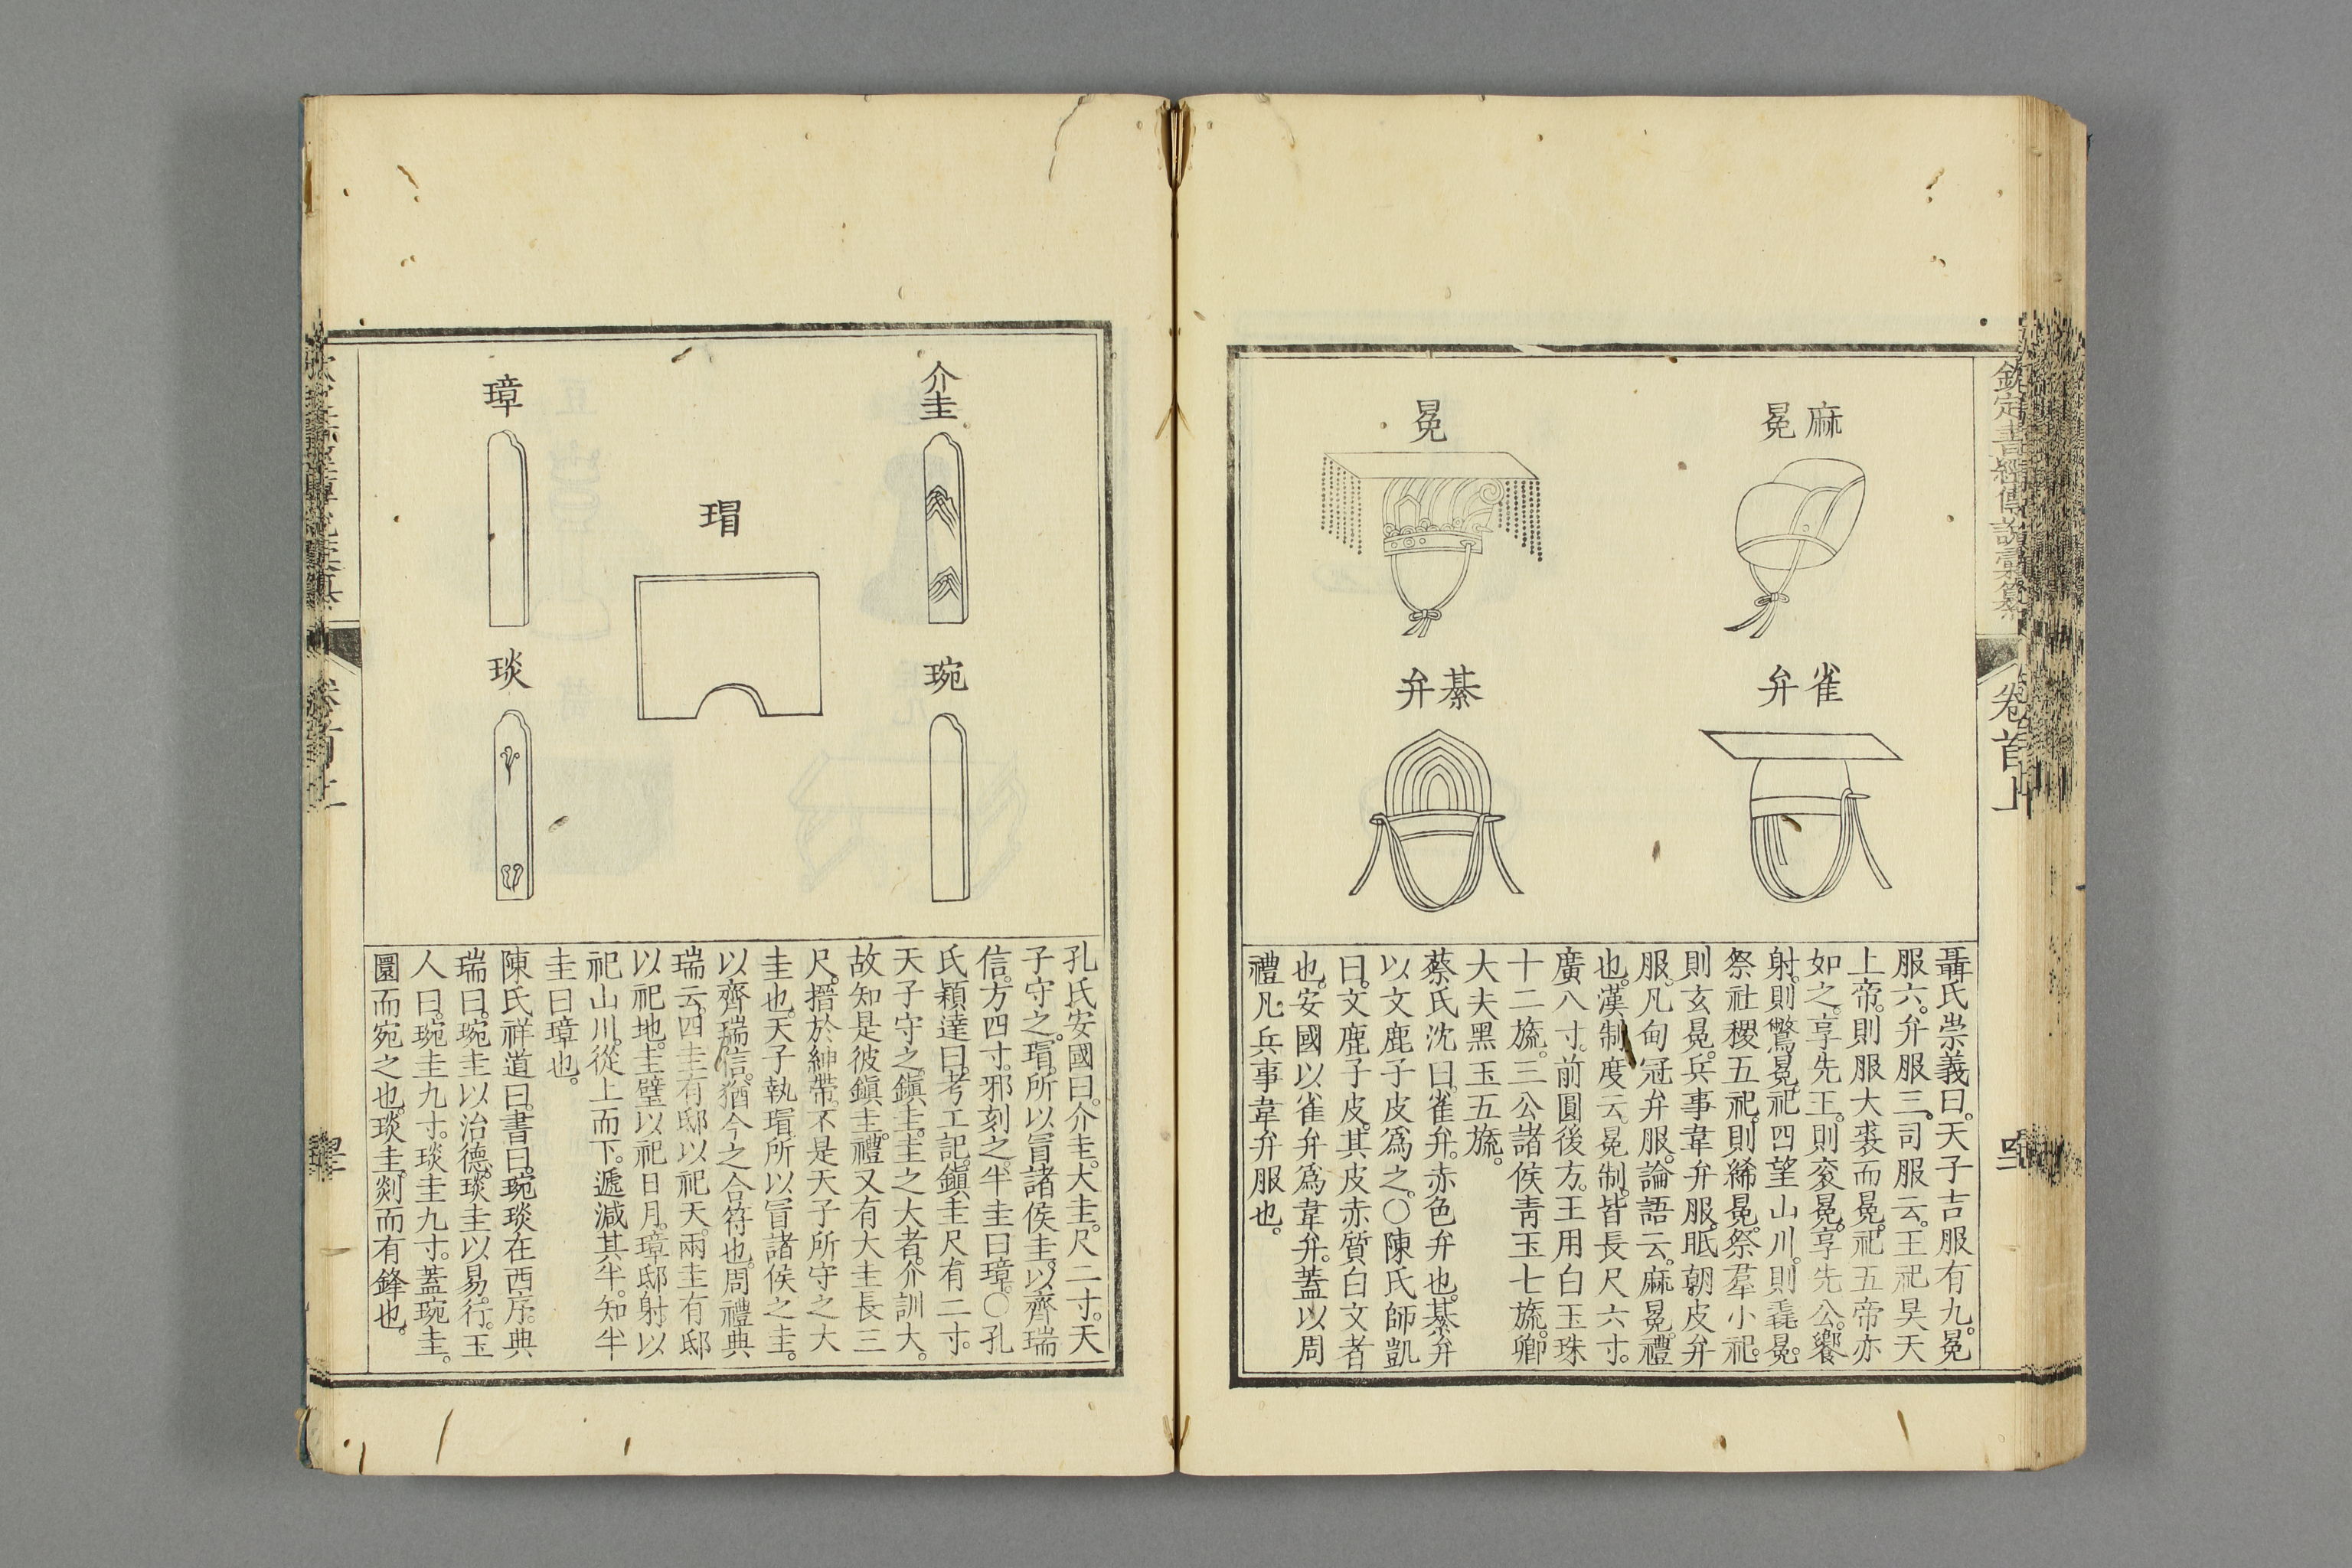 欽定書經傳說彙纂
卷首上
麻冕
冕
雀弁
綦弁
聶氏崇義曰。天子吉服有九。冕
服六。弁服三。司服云。王祀昊天
上帝。則服大裘而冕。祀五帝亦
如之。享先王。則袞冕。享先公。饗
射。則鷩冕。祀四望山川。則毳冕。
祭社稷五祀。則絺冕。祭羣小祀。
則玄冕。兵事韋弁服。眡朝皮弁
服。凡甸冠弁服。論語云。麻冕。禮
也。漢制度云。冕制。皆長尺六寸。
廣八寸。前圓後方。王用白玉珠
十二旒。三公諸侯靑玉七旒。卿
大夫黑玉五旒。
蔡氏沈曰。雀弁。赤色弁也。綦弁
以文鹿子皮爲之。○陳氏師凱
曰。文鹿子皮。其皮赤質白文者
也。安國以雀弁爲韋弁。蓋以周
禮凡兵事韋弁服也。
介圭
琬
瑁
璋
琰
孔氏安國曰。介圭。大圭。尺二寸。天
子守之。瑁。所以冒諸侯圭。以齊瑞
信。方四寸。邪刻之。半圭曰璋。○孔
氏穎達曰。考工記。鎭圭尺有二寸。
天子守之。鎭圭。圭之大者。介訓大。
故知是彼鎭圭。禮又有大圭長三
尺。搢於紳帶。不是天子所守之大
圭也。天子執瑁。所以冒諸侯之圭。
以齊瑞信。猶今之合符也。周禮典
瑞云。四圭有邸以祀天。兩圭有邸
以祀地。圭璧以祀日月。璋邸射。以
祀山川。從上而下。遞減其半。知半
圭曰璋也。
陳氏祥道曰。書曰。琬琰在西序。典
瑞曰。琬圭以治德。琰圭以易。行。玉
人曰。琬圭九寸。琰圭九寸。蓋琬圭。
圜而宛之也。琰圭。剡而有鋒也。
卷首上